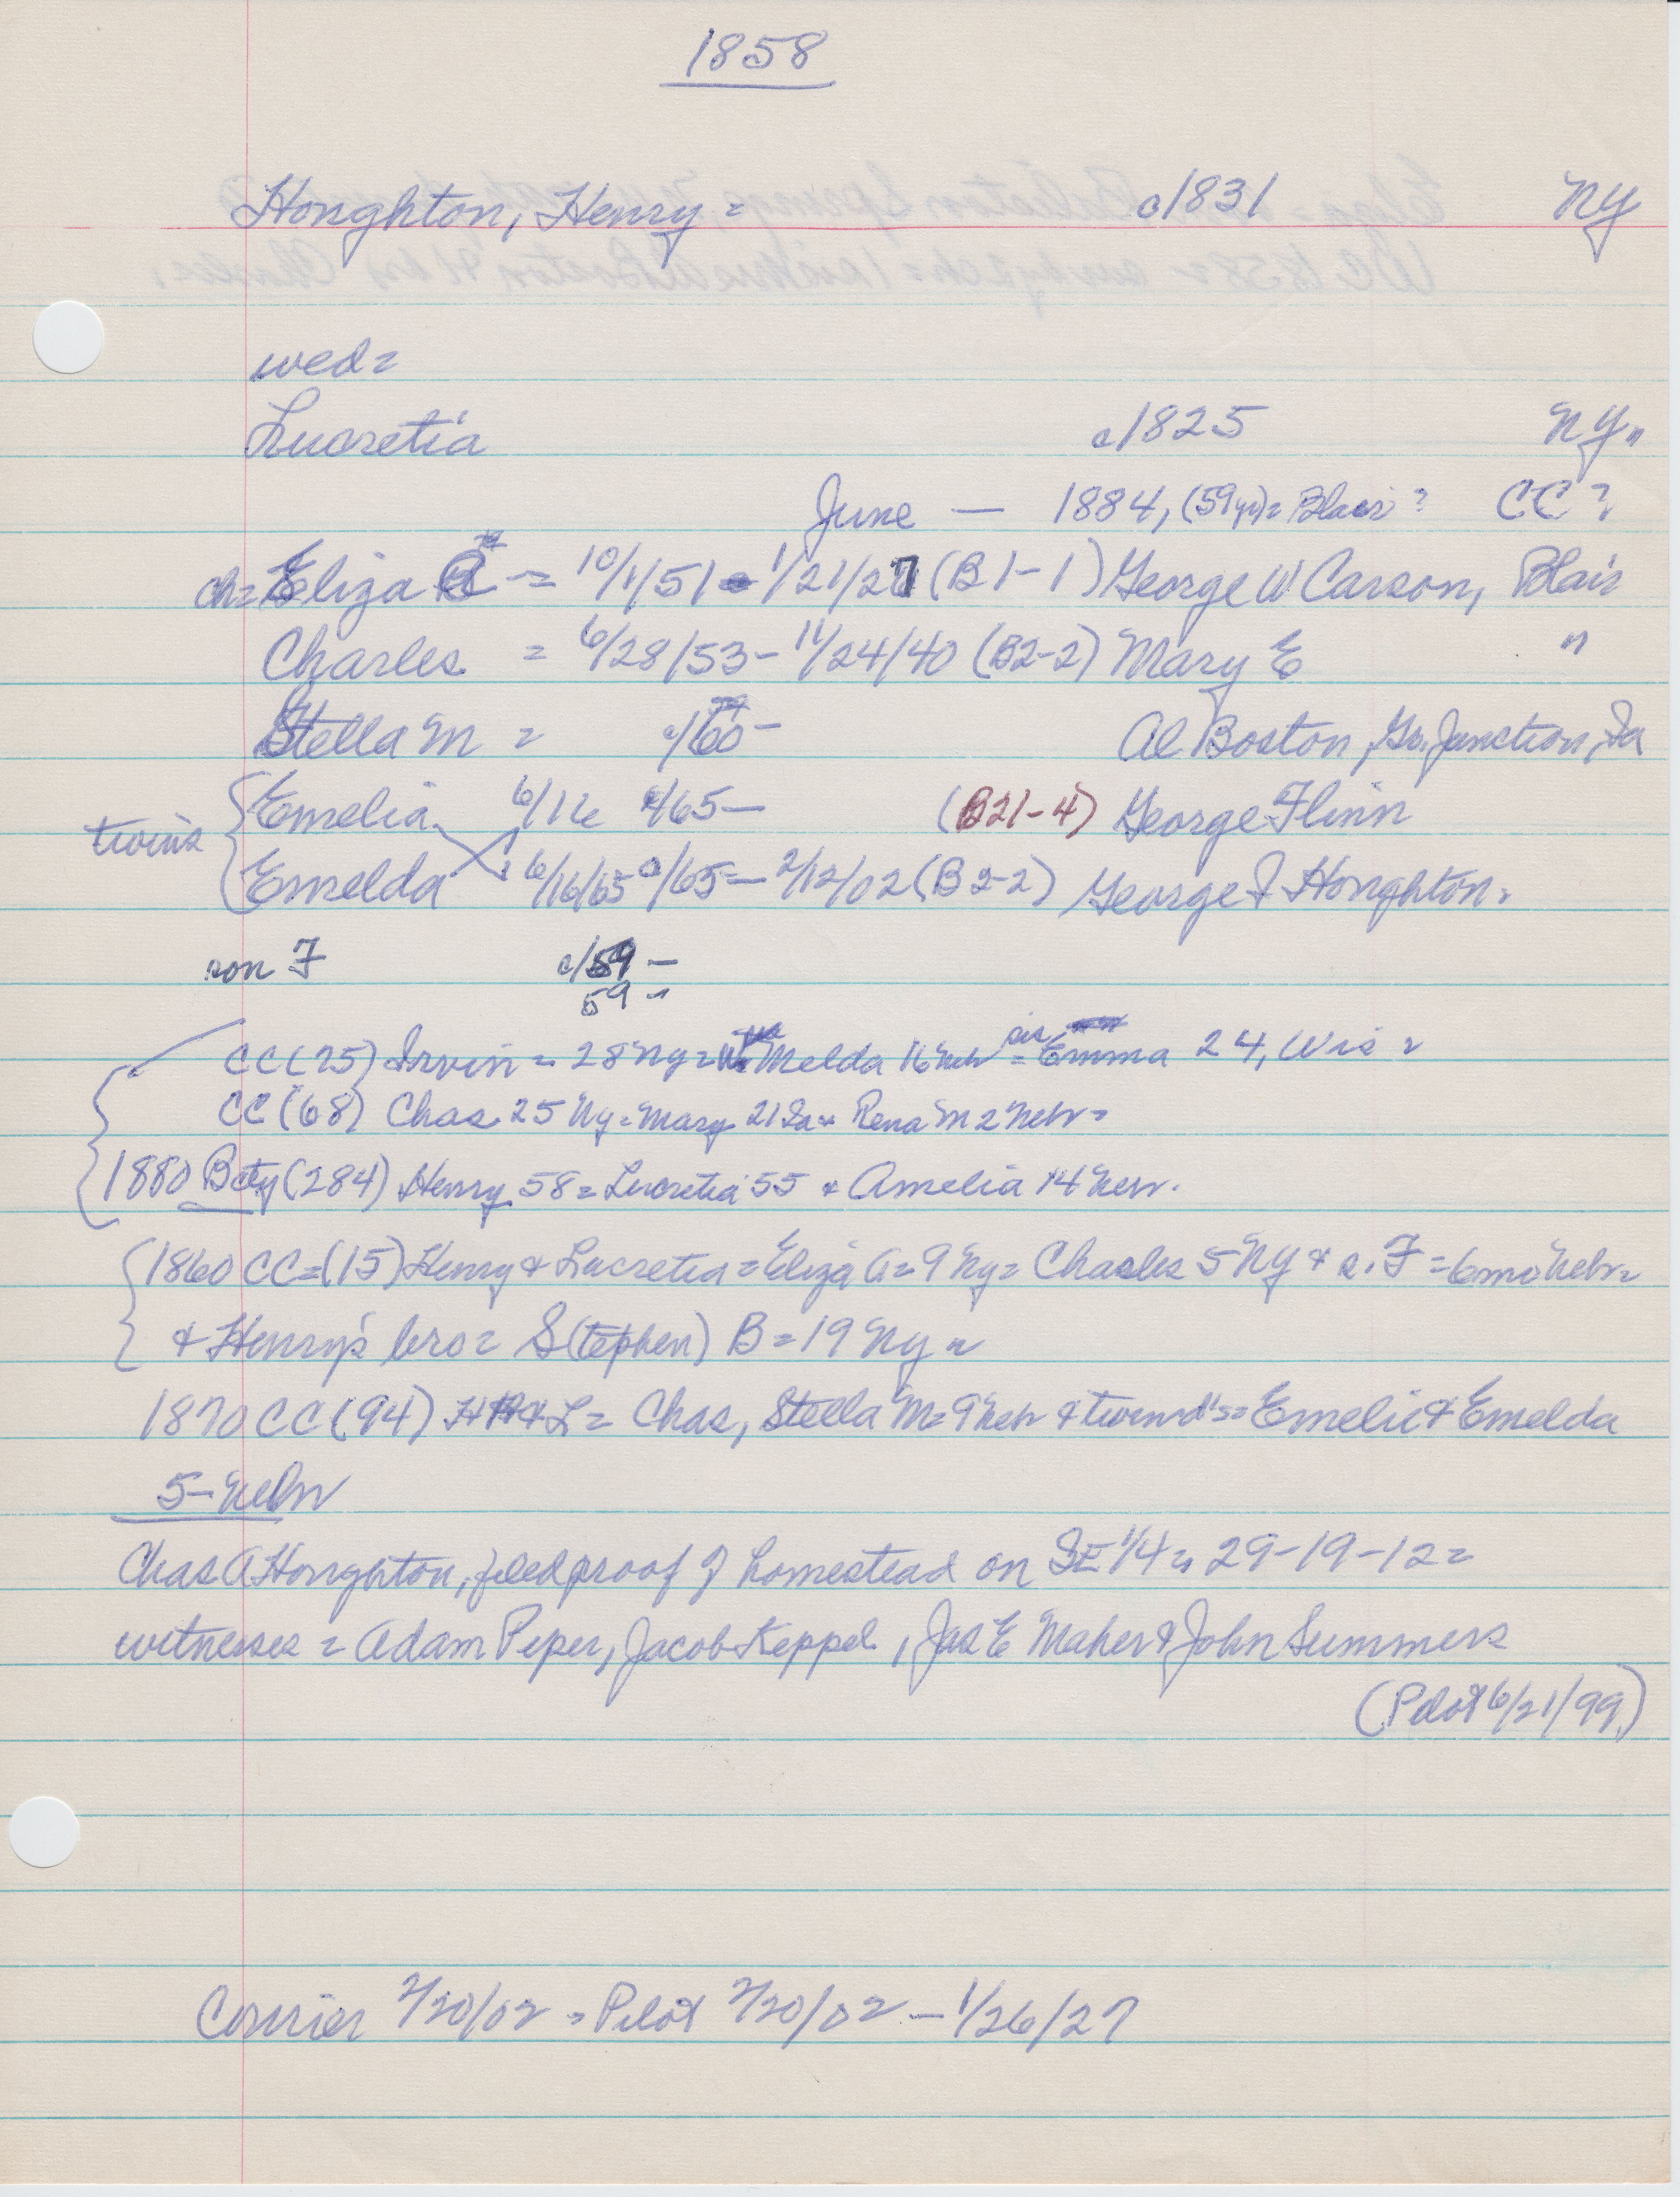 1858
Houghton, Henry = c1831 NY
wed =
Lucretia c1825 NY "
June — 1884, (59yr) = Blair ? CC ?
ch = Eliza A = 10/1/51 - 1/21/27 (B1-1) George W Carson, Blair
Charles = 6/28/53 - 11/24/40 (B2-2) Mary E "
Stella M = c/60 - Al Boston, Gr. Junction, Ia
twins { Emelia 6/16 c/65 — (B21-4) George Flinn
Emelda 6/16/65 c/65 — 2/12/02 (B2-2) George I Houghton.
son F c/59 —
59 -
CC (75) Irvin = 28 Ny = Melda 16 Neb = sis Emma 24, Wis =
CC (68) Chas 25 Ny = Mary 21 Ia + Rena M 2 Nebr =
1880 Bcty (284) Henry 58 = Lucretia 55 + Amelia 14 Nebr.
1860 CC = (15) Henry & Lucretia = Eliza A = 9 Ny = Charles 5 NY & s. F = 6mo Nebr =
& Henry's bro = S(tephen) B = 19 Ny =
1870 CC (94) H & L = Chas, Stella M = 9 Nebr & twin d's = Emelie & Emelda
5 - Nebr
Chas A Houghton, filed proof of homestead on SE 1/4 = 29-19-12 =
witnesses = Adam Peper, Jacob Keppel, Jas E Maher & John Summers
(Pilot 6/21/99)
Courier 2/20/02 = Pilot 2/20/02 — 1/26/27